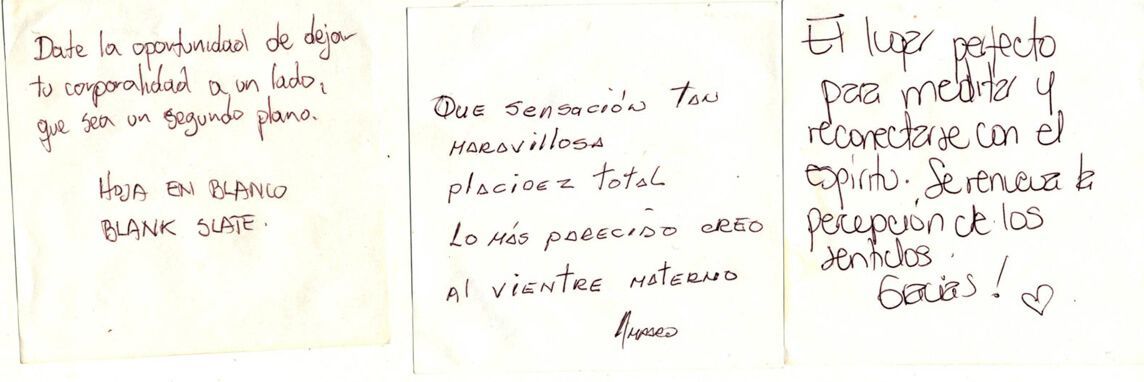 Date la oportunidad de dejar
tu corporalidad a un lado,
que sea un segundo plano.
HOJA EN BLANCO
BLANK SLATE.
QUE SENSACIÓN TAN
MARAVILLOSA
PLACIDEZ TOTAL
LO MÁS PARECIDO CREO
AL VIENTRE MATERNO
El lugar perfecto
para meditar y
reconectarse con el
espíritu. Se renueva la
percepción de los
sentidos.
Gracias! ♡